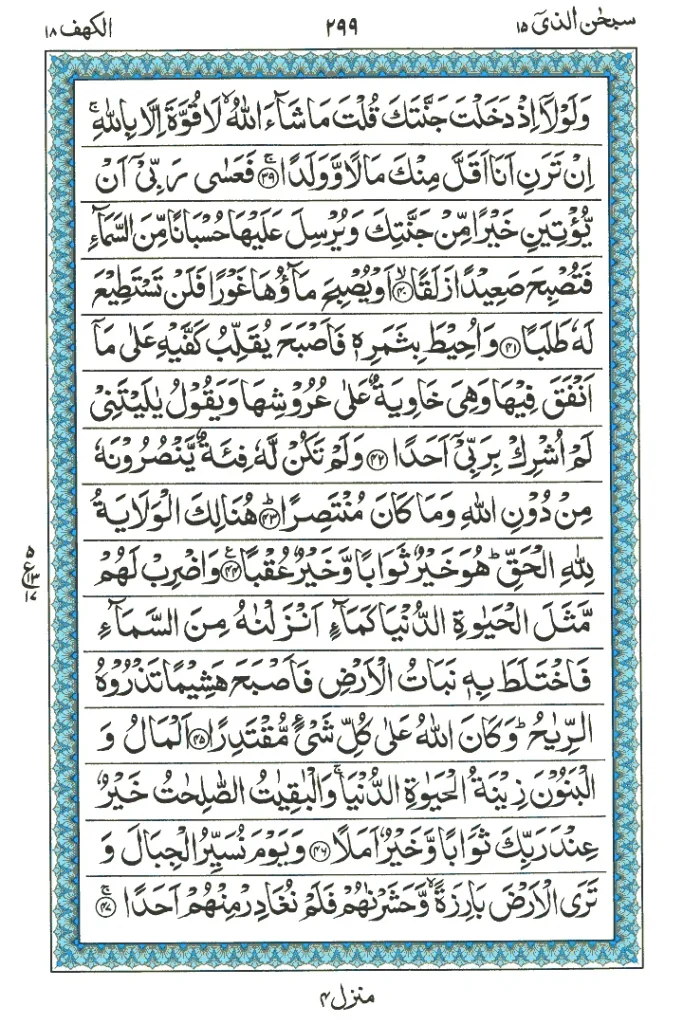 سبحٰن الذیٓ ۱۵
۲۹۹
الکهف ۱۸
وَلَوْلَاۤ اِذْ دَخَلْتَ جَنَّتَكَ قُلْتَ مَا شَآءَ اللّٰهُ ۙ لَا قُوَّةَ اِلَّا بِاللّٰهِ ۚ
اِنْ تَرَنِ اَنَا اَقَلَّ مِنْكَ مَالًا وَّ وَلَدًا ۚ ﴿۳۹﴾ فَعَسٰى رَبِّیْۤ اَنْ
یُّؤْتِیَنِ خَیْرًا مِّنْ جَنَّتِكَ وَ یُرْسِلَ عَلَیْهَا حُسْبَانًا مِّنَ السَّمَآءِ
فَتُصْبِحَ صَعِیْدًا زَلَقًا ۙ ﴿۴۰﴾ اَوْ یُصْبِحَ مَآؤُهَا غَوْرًا فَلَنْ تَسْتَطِیْعَ
لَهٗ طَلَبًا ﴿۴۱﴾ وَ اُحِیْطَ بِثَمَرِهٖ فَاَصْبَحَ یُقَلِّبُ كَفَّیْهِ عَلٰى مَاۤ
اَنْفَقَ فِیْهَا وَ هِیَ خَاوِیَةٌ عَلٰى عُرُوْشِهَا وَ یَقُوْلُ یٰلَیْتَنِیْ
لَمْ اُشْرِكْ بِرَبِّیْۤ اَحَدًا ﴿۴۲﴾ وَ لَمْ تَكُنْ لَّهٗ فِئَةٌ یَّنْصُرُوْنَهٗ
مِنْ دُوْنِ اللّٰهِ وَ مَا كَانَ مُنْتَصِرًا ؕ ﴿۴۳﴾ هُنَالِكَ الْوَلَایَةُ
لِلّٰهِ الْحَقِّ ؕ هُوَ خَیْرٌ ثَوَابًا وَّ خَیْرٌ عُقْبًا ۧ ﴿۴۴﴾ وَ اضْرِبْ لَهُمْ
مَّثَلَ الْحَیٰوةِ الدُّنْیَا كَمَآءٍ اَنْزَلْنٰهُ مِنَ السَّمَآءِ
فَاخْتَلَطَ بِهٖ نَبَاتُ الْاَرْضِ فَاَصْبَحَ هَشِیْمًا تَذْرُوْهُ
الرِّیٰحُ ؕ وَ كَانَ اللّٰهُ عَلٰى كُلِّ شَیْءٍ مُّقْتَدِرًا ﴿۴۵﴾ اَلْمَالُ وَ
الْبَنُوْنَ زِیْنَةُ الْحَیٰوةِ الدُّنْیَا ۚ وَ الْبٰقِیٰتُ الصّٰلِحٰتُ خَیْرٌ
عِنْدَ رَبِّكَ ثَوَابًا وَّ خَیْرٌ اَمَلًا ﴿۴۶﴾ وَ یَوْمَ نُسَیِّرُ الْجِبَالَ وَ
تَرَى الْاَرْضَ بَارِزَةً ۙ وَّ حَشَرْنٰهُمْ فَلَمْ نُغَادِرْ مِنْهُمْ اَحَدًا ۚ ﴿۴۷﴾
۵
ع ۱۳
۱۷
منزل ۴